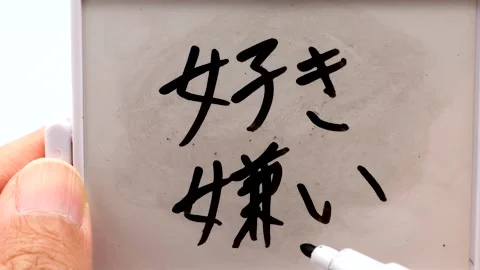 好き
嫌い